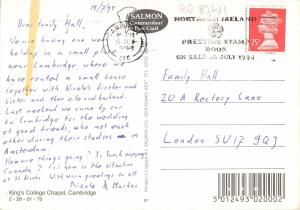 18/7/94
Dear Family Hall,
We are having one week
holiday in a small place
near Cambridge where we
have rented a small house
together with Nicole's brother and
sister and their friend and husband.
Last week we came by our
to Cambridge for the wedding
of good friends, who met each
other during their studies in
Amsterdam.
How are things going? Is Sarah enjoying
Canada? How is the situation
at St Giles? With warm greetings to all
Nicole & Markus
King's College Chapel, Cambridge
2 - 26 - 01 - 70
SALMON
Cameracolour
Post Card
1994
NORTHERN IRELAND
PRESTIGE STAMP
BOOK
ON SALE 26 JULY 1994
25
Family Hall
20 A Rectory Lane
London SW17 9QJ
5 012493 020002